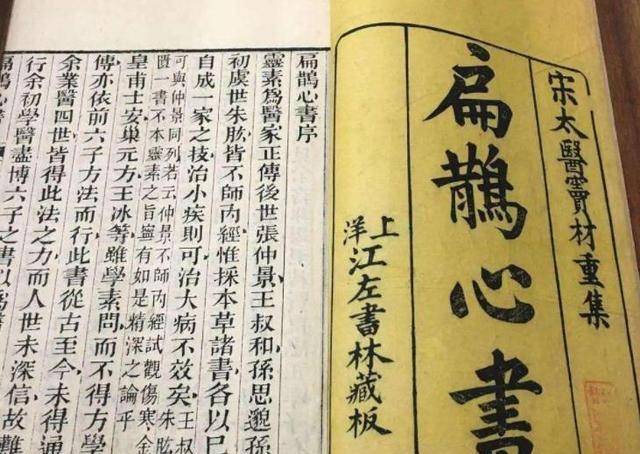 宋太醫竇材重集
扁鵲心書
上洋
江左書林藏板
扁鵲心書序
靈素爲醫家正傳後世張仲景王叔和孫思邈孫
初虞世朱肱皆不師內經惟採本草諸書各以已
自成一家之技治小疾則可治大病不效矣王叔
朱肱
可與仲景同列若云仲景不師內經試觀傷寒金
匱一書不本靈素之旨寧有如是精深之論乎
皇甫士安巢元方王冰等雖學素問而不得方學
傳亦依前六子方法而行此書從古至今未得通
余業醫四世皆得此法之力而人世未深信故難
行余初學醫盡博六子之書以爲醫
扁鵲心書